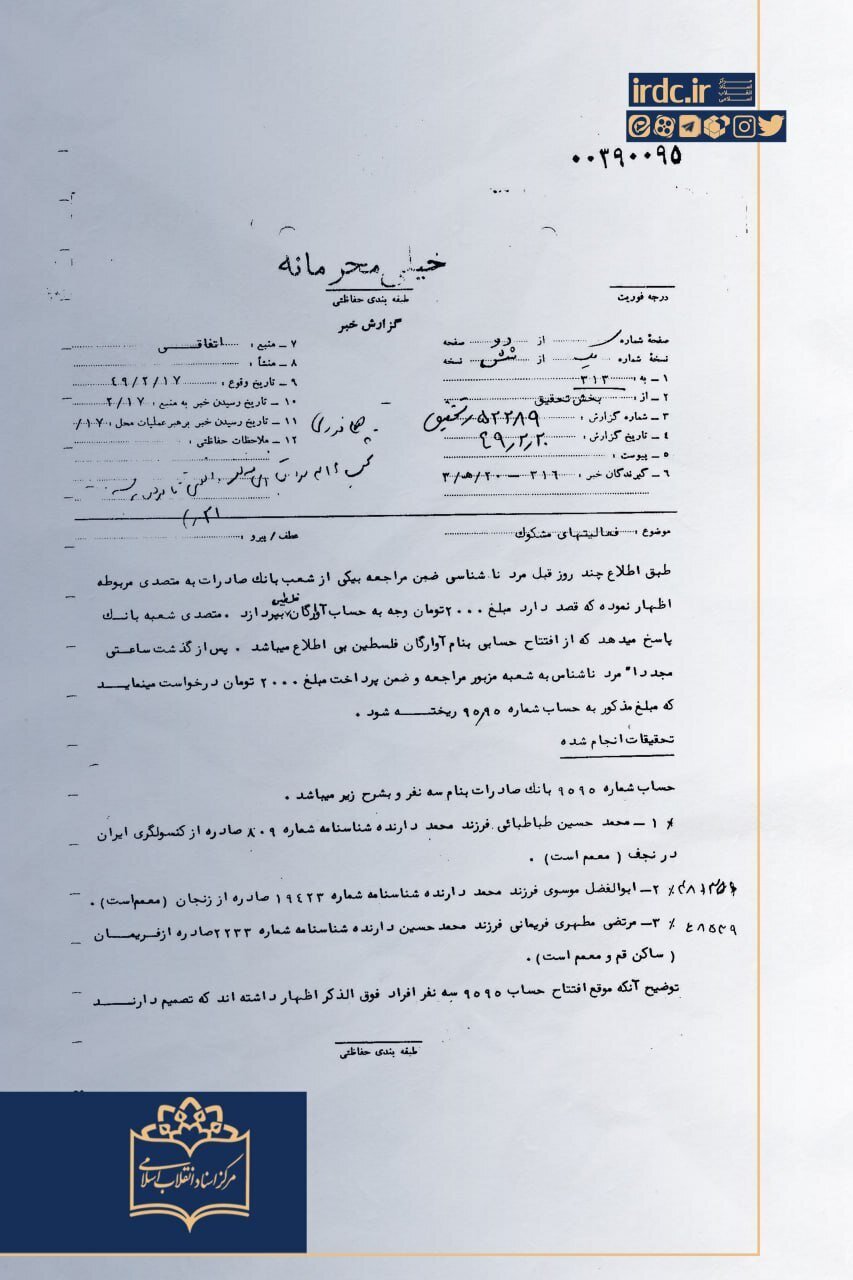 irdc.ir
مرکز اسناد انقلاب اسلامی
۰۰۳۹۰۰۹۵
خیلی محرمانه
طبقه بندی حفاظتی
درجه فوریت
گزارش خبر
صفحهٔ شماره از دو صفحه
نسخهٔ شماره یک از شش نسخه
۱ ـ به : ۳۱۳
۲ ـ از : بخش تحقیق
۳ ـ شماره گزارش : ۵۲۲۸۹ تحقیق
۴ ـ تاریخ گزارش : ۴۹٫۲٫۲۰
۵ ـ پیوست :
۶ ـ گیرندگان خبر : ۳۱۶ – ۲۰/هـ/۳
۷ ـ منبع : اتفاقی
۸ ـ منشأ :
۹ ـ تاریخ وقوع : ۴۹/۲/۱۷
۱۰ ـ تاریخ رسیدن خبر به منبع : ۲/۱۷
۱۱ ـ تاریخ رسیدن خبر برهبر عملیات محل : ۱۷/
۱۲ ـ ملاحظات حفاظتی :
موضوع : فعالیتهای مشکوک
عطف / پیرو :
طبق اطلاع چند روز قبل مرد ناشناسی ضمن مراجعه بیکی از شعب بانک صادرات به متصدی مربوطه
اظهار نموده که قصد دارد مبلغ ۲۰۰۰تومان وجه به حساب آوارگان فلسطین بپردازد . متصدی شعبه بانک
پاسخ میدهد که از افتتاح حسابی بنام آوارگان فلسطین بی اطلاع میباشد . پس از گذشت ساعتی
مجددا" مرد ناشناس به شعبه مزبور مراجعه و ضمن پرداخت مبلغ ۲۰۰۰ تومان درخواست مینماید
که مبلغ مذکور به حساب شماره ۹۵٫۹۵ ریخته شود .
تحقیقات انجام شده
حساب شماره ۹۵۹۵ بانک صادرات بنام سه نفر و بشرح زیر میباشد .
٪ ۱ ـ محمد حسین طباطبائی فرزند محمد دارنده شناسنامه شماره ۸۰۹ صادره از کنسولگری ایران
در نجف ( معمم است ) .
٪ ۲ـ ابوالفضل موسوی فرزند محمد دارنده شناسنامه شماره ۱۹۴۲۳ صادره از زنجان (معمم‌است) .
۴۸۵۳۹ ٪ ۳ـ مرتضی مطهری فریمانی فرزند محمد حسین دارنده شناسنامه شماره ۲۲۳۳صادره ازفریمان
( ساکن قم و معمم است) .
توضیح آنکه موقع افتتاح حساب ۹۵۹۵ سه نفر افراد فوق الذکر اظهار داشته اند که تصمیم دارند
طبقه بندی حفاظتی
مرکز اسناد انقلاب اسلامی